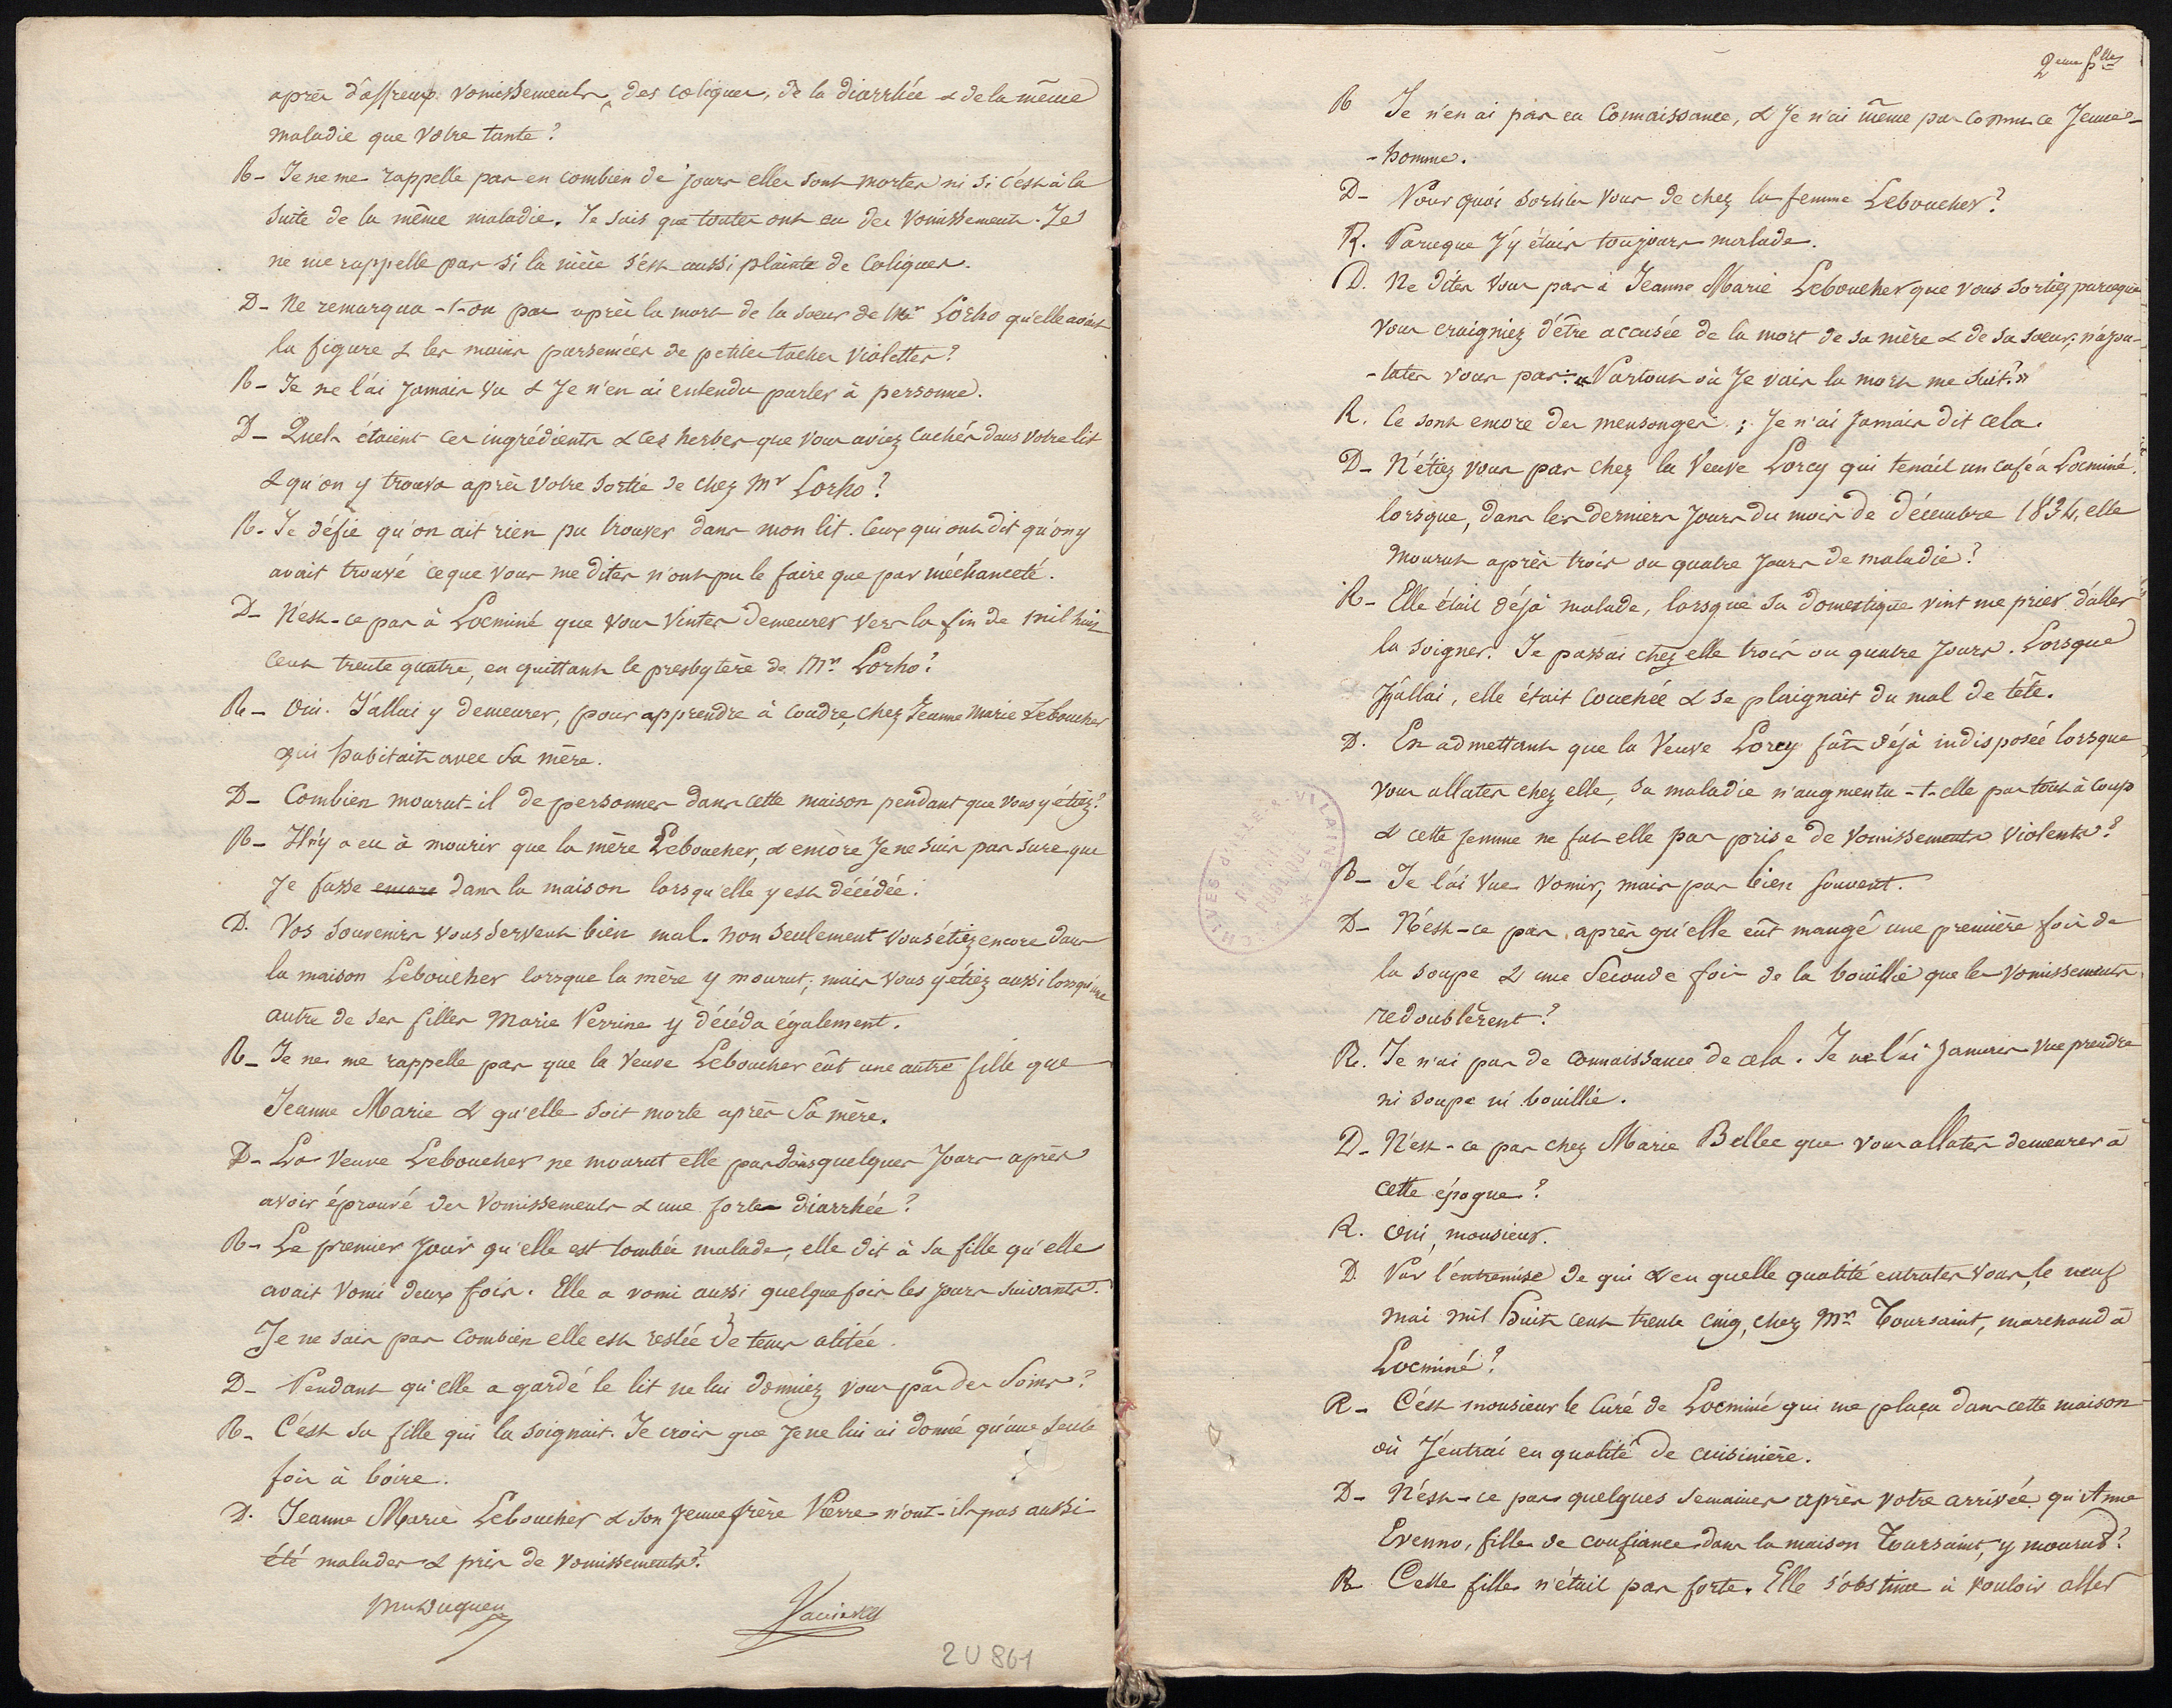 après d'affreux vomissements, des coliques, de la diarrhée & de la même
maladie que votre tante?
R- Je ne me rappelle pas en combien de jours elles sont mortes ni si c'est à la
suite de la même maladie. Je sais que toutes ont eu des vomissements. Je
ne me rappelle pas si la nièce s'est aussi plainte de coliques.
D- Ne remarqua-t-on pas après la mort de la soeur de Mr Lorho qu'elle avait
la figure & les mains parsemées de petites taches violettes?
R- Je ne l'ai jamais vu & je n'en ai entendu parler à personne.
D- Quels étaient ces ingrédients & ces herbes que vous aviez cachés dans votre lit
& qu'on y trouva après votre sortie de chez Mr Lorho?
R- Je défie qu'on ait rien pu trouver dans mon lit. Ceux qui ont dit qu'on y
avait trouvé ce que vous me dites n'ont pu le faire que par méchanceté.
D- N'est-ce pas à Locminé que vous vintes demeurer vers la fin de mil huit
cent trente quatre, en quittant le presbytère de Mr Lorho?
R- Oui. J'allai y demeurer, pour apprendre à coudre, chez Jeanne Marie Leboucher
qui habitait avec sa mère.
D- Combien mourut-il de personnes dans cette maison pendant que vous y étiez?
R- Il n'y a eu à mourir que la mère Leboucher, & encore je ne suis pas sure que
je fusse encore dans la maison lorsqu'elle y est décédée.
D. Vos souvenirs vous servent bien mal. Non seulement vous étiez encore dans
la maison Leboucher lorsque la mère y mourut; mais vous y étiez aussi lorsqu'une
autre de ses filles Marie Perrine y décéda également.
R- Je ne me rappelle pas que la veuve Leboucher eût une autre fille que
Jeanne Marie & qu'elle soit morte après sa mère.
D- La veuve Leboucher ne mourut elle pas dans quelques jours après
avoir éprouvé des vomissements & une forte diarrhée?
R- Le premier jour qu'elle est tombée malade, elle dit à sa fille qu'elle
avait vomi deux fois. Elle a vomi aussi quelquefois les jours suivants.
Je ne sais pas combien elle est restée de tems alitée.
D- Pendant qu'elle a gardé le lit ne lui donniez vous pas des soins?
R- C'est sa fille qui la soignait. Je crois que je ne lui ai donné qu'une seule
fois à boire.
D. Jeanne Marie Leboucher & son jeune frère Pierre n'ont-ils pas aussi
été malades & pris de vomissements?
2 U 861
2eme flle
R Je n'en ai pas eu connaissance, & je n'ai même pas connu ce jeune-
-homme.
D- Pourquoi sortites vous de chez la femme Leboucher?
R. Parceque j'y étais toujours malade.
D. Ne dites vous pas à Jeanne Marie Leboucher que vous sortiez parceque
vous craigniez d'être accusée de la mort de sa mère & de sa soeur; n'ajou-
-tates vous pas: «Partout où je vais la mort me suit?»
R. Ce sont encore des mensonges; je n'ai jamais dit cela.
D- N'étiez vous pas chez la veuve Lorcy qui tenait un café à Locminé,
lorsque, dans les derniers jours du mois de décembre 1834, elle
mourut après trois ou quatre jours de maladie?
R- Elle était déjà malade, lorsque sa domestique vint me prier d'aller
la soigner. Je passai chez elle trois ou quatre jours. Lorsque
j'y allai, elle était couchée & se plaignait du mal de tête.
D. En admettant que la veuve Lorcy fût déjà indisposée lorsque
vous allates chez elle, sa maladie n'augmenta-t-elle pas tout à coup
& cette femme ne fut elle pas prise de vomissements violents?
R- Je l'ai vue vomir, mais pas bien souvent.
D- N'est-ce pas, après qu'elle eût mangé une première fois de
la soupe & une seconde fois de la bouillie que les vomissements
redoublèrent?
R. Je n'ai pas de connaissance de cela. Je ne l'ai jamais vue prendre
ni soupe ni bouillie.
D- N'est-ce pas chez Marie Bellec que vous allates demeurer à
cette époque?
R. Oui, monsieur.
D. Par l'entremise de qui & en quelle qualité entrates vous, le neuf
mai mil huit cent trente cinq, chez Mr Toursaint, marchand à
Locminé?
R- C'est monsieur le Curé de Locminé qui me plaça dans cette maison
où j'entrai en qualité de cuisinière.
D- N'est-ce pas quelques semaines après votre arrivée qu'Anne
Evenno, fille de confiance dans la maison Toursaint, y mourut?
R Cette fille n'était pas forte. Elle s'obstina à vouloir aller
ARCHIVES D'ILLE-&-VILAINE